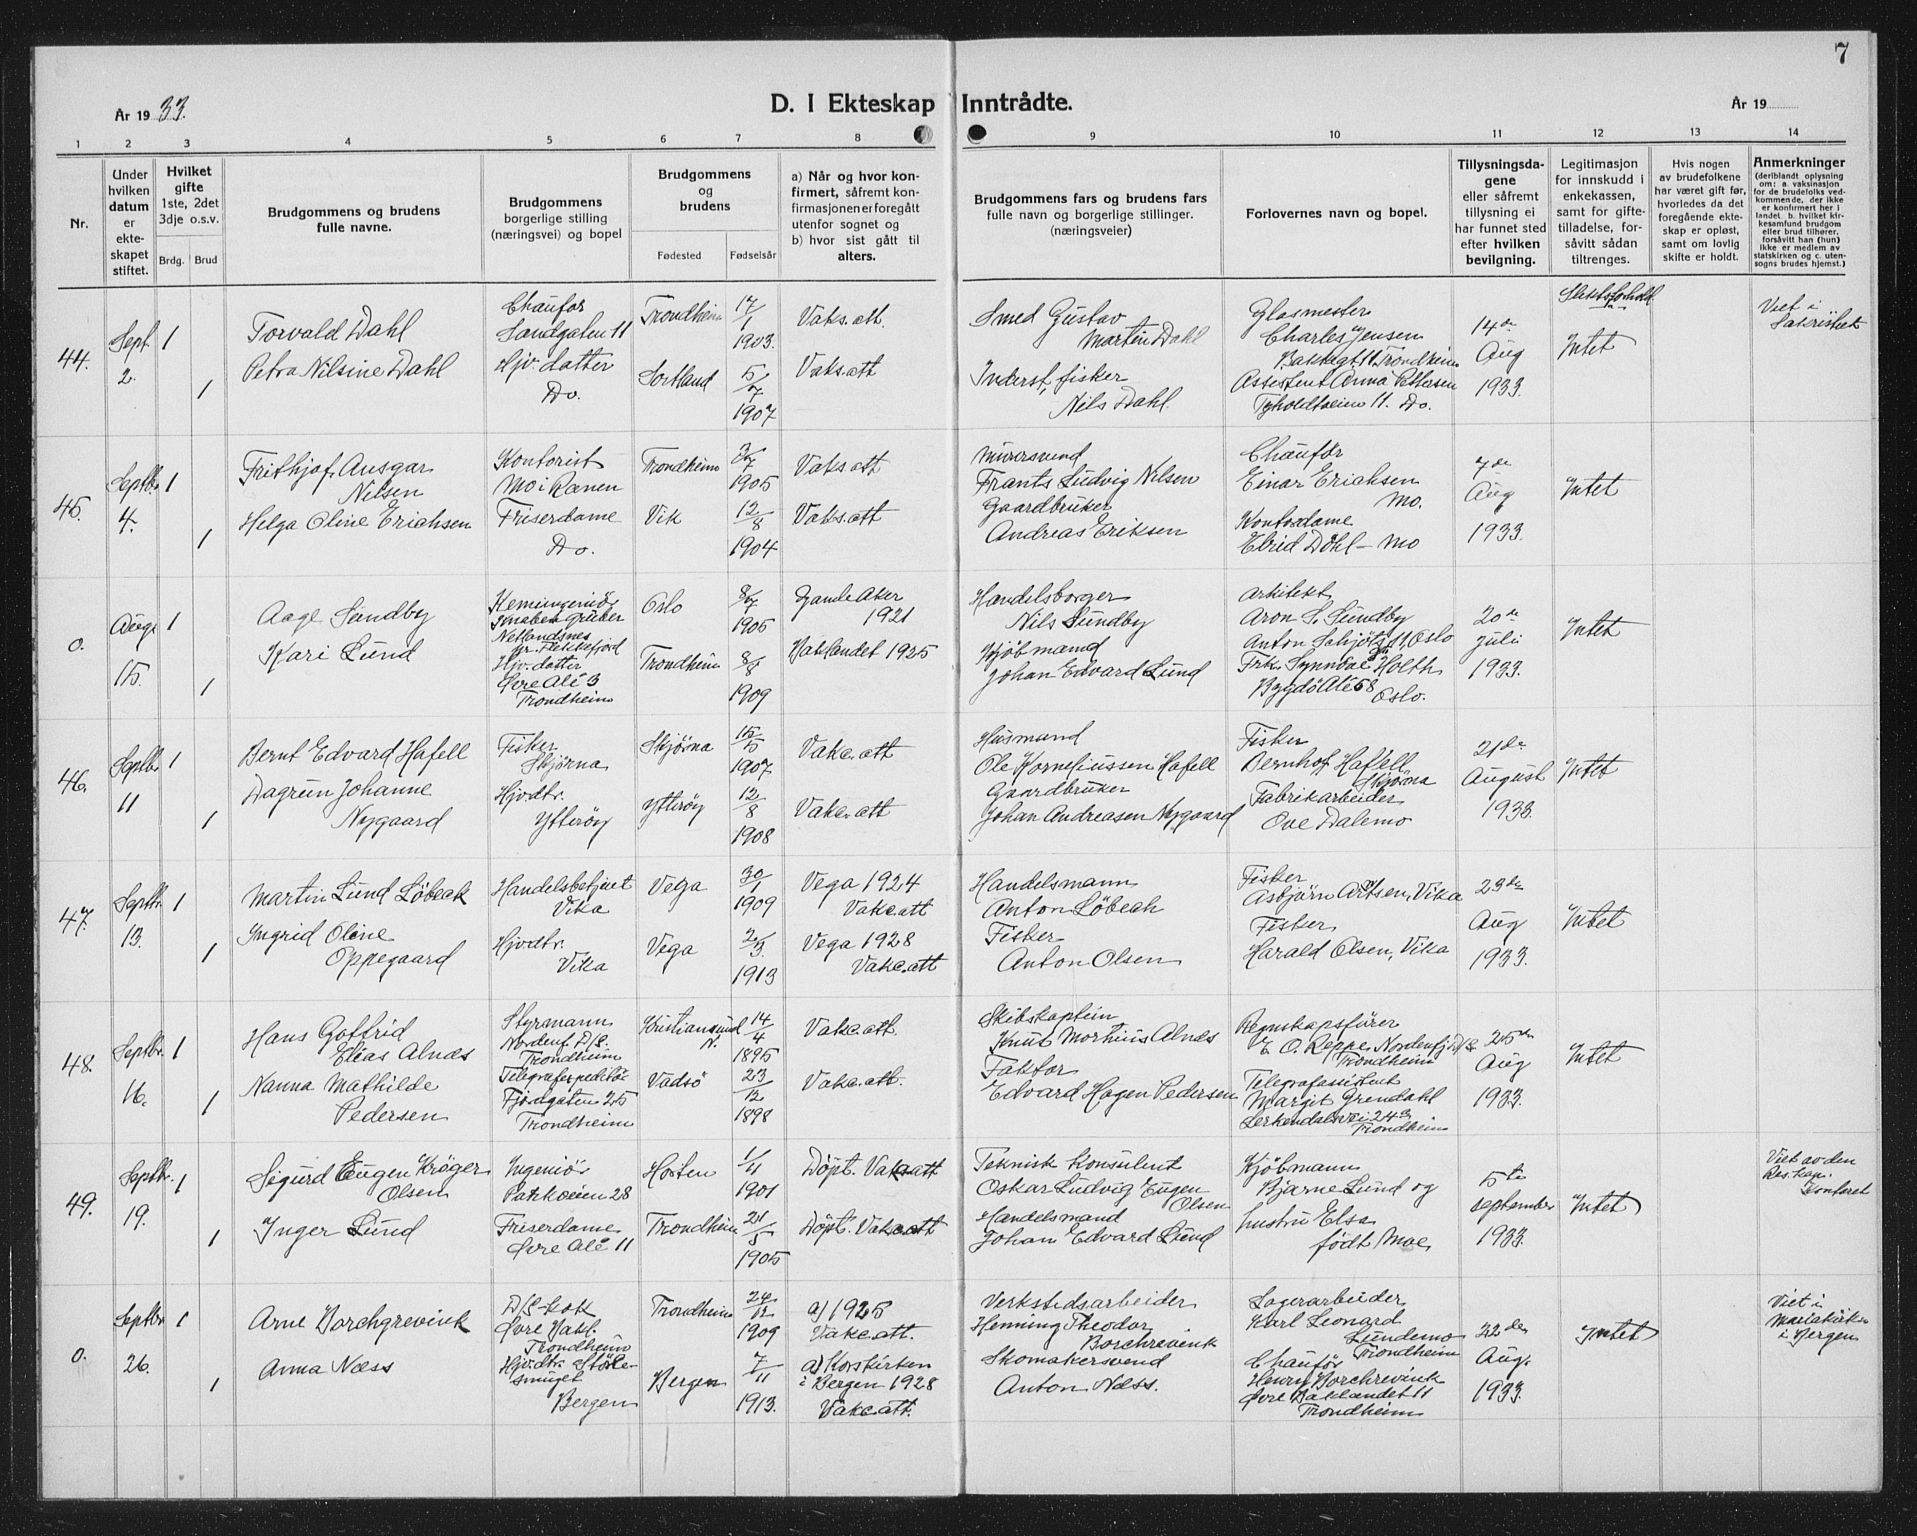 7
År 1933.
D. I Ekteskap Inntrådte.
År 19
1 2 3 4 5 6 7 8 9 10 11 12 13 14
Nr.
Under
hvilken
datum
er
ekte-
skapet
stiftet.
Hvilket
gifte
1ste, 2det
3dje o.s.v.
Brdg. Brud
Brudgommens og brudens
fulle navne.
Brudgommens
borgerlige stilling
(næringsvei) og bopel
Brudgommens
og
brudens
Fødested Fødselsår
a) Når og hvor kon-
firmert, såfremt kon-
firmasjonen er foregått
utenfor sognet og
b) hvor sist gått til
alters.
Brudgommens fars og brudens fars
fulle navn og borgerlige stillinger.
(næringsveier)
Forlovernes navn og bopel.
Tillysningsda-
gene
eller såfremt
tillysning ei
har funnet sted
efter hvilken
bevilgning.
Legitimasjon
for innskudd i
enkekassen,
samt for gifte-
tilladelse, for-
såvitt sådan
tiltrenges.
Hvis nogen
av brudefolkene
har været gift før,
hvorledes da det
foregående ekte-
skap er opløst,
samt om lovlig
skifte er holdt.
Anmerkninger
(deriblandt oplysning
om: a. vaksinasjon
for de brudefolks ved-
kommende, der ikke
er konfirmert her i
landet. b. hvilket kir-
kesamfund brudgom
eller brud tilhører,
forsåvitt han (hun)
ikke er medlem av
statskirken og c. uten-
sogns brudes hjemst.)
44.
Sept.
2.
1
1
Torvald Dahl
Petra Nilsine Dahl
Chaufør
Sandgaten 11
Hjv. datter
Do.
Trondheim
Sortland
17/1
1903.
5/7
1907
Vaks.att.
Vaks.att
Smed Gustav
Martin Dahl
Inderst, fisker
Nils Dahl.
Glasmester
Charles Jensen
Bakkegt. 11 Trondheim
Assistent Anna Pettersen
Tyholdtveien 11. Do.
14de
Aug
1933.
Slektsforhold
Intet
Viet i
45.
Septbr.
4.
1
1
Frithjof Ansgar
Nilsen
Helga Oline Erichsen
Kontorist
Mo i Ranen
Friserdame
Do.
Trondheim
Vik
1905
12/8
1904
Vaks.att
Vaks.att
Murersvend
Frants Ludvig Nilsen
Gaardbruker
Andreas Eriksen
Chaufør
Einar Erichsen
Mo.
Kontordame
Dahl - Mo
7de
Aug
1933.
Intet
0.
Aug.
15.
1
1
Aage Sundby
Kari Lund
Kemiingeniør
Knaben Gruber
Netlandsnes
pr. Flekkefjord
Hjv. datter
Øvre Alé 3
Trondheim
Oslo
Trondheim
8/7
1905
8/8
1909
Gamle Aker
1921
Baklandet 1925
Handelsborger
Nils Sundby
Kjøbmand
Johan Edvard Lund
Arkitekt
Aron S. Sundby
Anton Schjøtsgt 11, Oslo
Frk. Synnøve Holth
Bygdö Alé 58
Oslo.
20de
juli
1933.
Intet
46.
Septbr
11
1
1
Bernt Edvard Hafell
Dagrun Johanne
Nygaard
Fisker
Skjørna
Hjvdtr.
Ytterøy
Skjørna
Ytterøy
15/5
1907
12/8
1908
Vaks.att
Vaks.att
Husmand
Ole Korneliussen Hafell
Gaardbruker
Johan Andreasen Nygaard
Fisker
Bernhof Hafell
Skjørna
Fabrikarbeider
Ove Dalemo
21de
August
1933.
Intet
47.
Septbr.
13.
1
1
Martin Lund Løbeck
Ingrid Oline
Oppegaard
Handelsbetjent
Vika
Hjvdtr.
Vika
Vega
Vega
30/1
1909
2/3.
1913
Vega 1924
Vaks.att
Vega 1928
Vaks.att
Handelsmann
Anton Løbeck
Fisker
Anton Olsen
Fisker
Asbjørn Antsen, Vika
Fisker
Harald Olsen, Vika
23de
Aug
1933.
Intet
48.
Septbr.
16.
1
1
Hans Gotfrid
Elias Alnæs
Nanna Mathilde
Pedersen
Styrmann
Nordenf. D/S.
Trondheim
Telegrafexpeditør
Fjordgaten 25
Trondheim
Kristiansund
N.
Vadsø
14/4
1895
23/12
1898
Vaks.att.
Vaks.att.
Skibskaptein
Knut Mortinus Alnæs
Faktor
Edvard Hagen Pedersen
Regnskapsfører
E. O. Reppe, Nordenfj. D/S
Trondheim
Telegrafassistent
Margit Grendahl
Lerkendalsvei 24B
Trondheim
25de
Aug
1933.
Intet
49.
Septbr.
19.
1
1
Sigurd Eugen Krøger
Olsen
Inger Lund
Ingeniør
Parkveien 28
Friserdame
Øvre Alé 11
Horten
Trondheim
1/11
1901
24/5
1905
Døpt. Vaks.att
Døpt. Vaks.att
Teknisk konsulent
Oskar Ludvig Eugen
Olsen
Handelsmand
Johan Edvard Lund
Kjøbmann
Bjarne Lund og
hustru Elsa
født Moe,
5te
september
1933.
Intet
Viet av den
Res. kap.
Kontoret
0.
Septbr
26.
1
1
Arne Borchgrevink
Anna Næss
D/S-kok
Øvre Bakl.
Trondheim
Hjvdtr. Støle-
smuget
Bergen
Trondheim
Bergen
24/12
1909
7/11
1913.
a) 1925
Vaks.att.
a) Korskirken
i Bergen 1928
Vaks.att.
Verkstedsarbeider
Henning Theodor
Borchrevink
Skomakersvend
Anton Næss.
Lagerarbeider
Karl Leonard
Lundemo
Trondheim
Chaufør
Henry Borchrevink
Øvre Baklandet 11
Trondheim
22de
Aug.
1933.
Intet
Viet i
Mariakirken
i Bergen